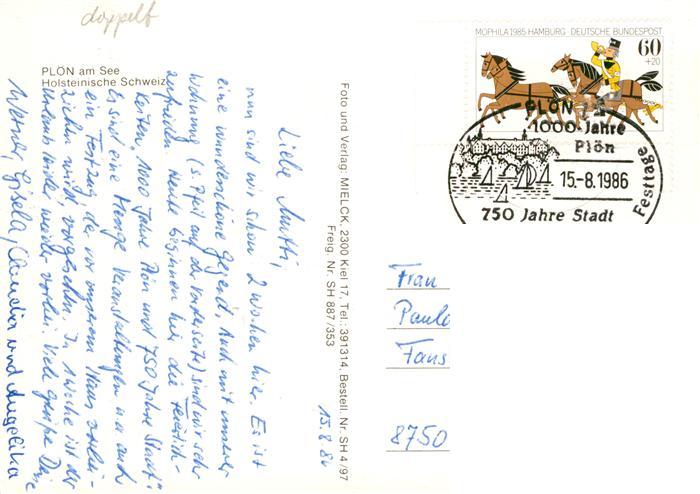 doppelt
PLÖN am See
Holsteinische Schweiz
Liebe Mutti,
nun sind wir schon 2 Wochen hier. Es ist
eine wunderschöne Gegend. Auch mit unserer
Wohnung (s. Pfeil auf der Vorderseite) sind wir sehr
zufrieden. Heute beginnen hier die Feierlich-
keiten, 1000 Jahre Plön und 750 Jahre Stadt"
Es sind eine Menge Veranstaltungen u.a. auch
ein Festzug der vor unserem Haus vorbei-
ziehen wird, vorgesehen. In 1 Woche ist der
Urlaub leider wieder vorbei. Viele Grüße Deine
Werner, Gisela, Claudia und Angelika
15.8.86
Foto und Verlag: MIELCK, 2300 Kiel 17, Tel.: 391314, Bestell. Nr. SH 4/97
Freig. Nr. SH 887/353
MOPHILA 1985 HAMBURG · DEUTSCHE BUNDESPOST
60
+20
PLÖN
1000 Jahre
Plön
15.-8.1986
750 Jahre Stadt
Festtage
Frau
Paula
Fans
8750